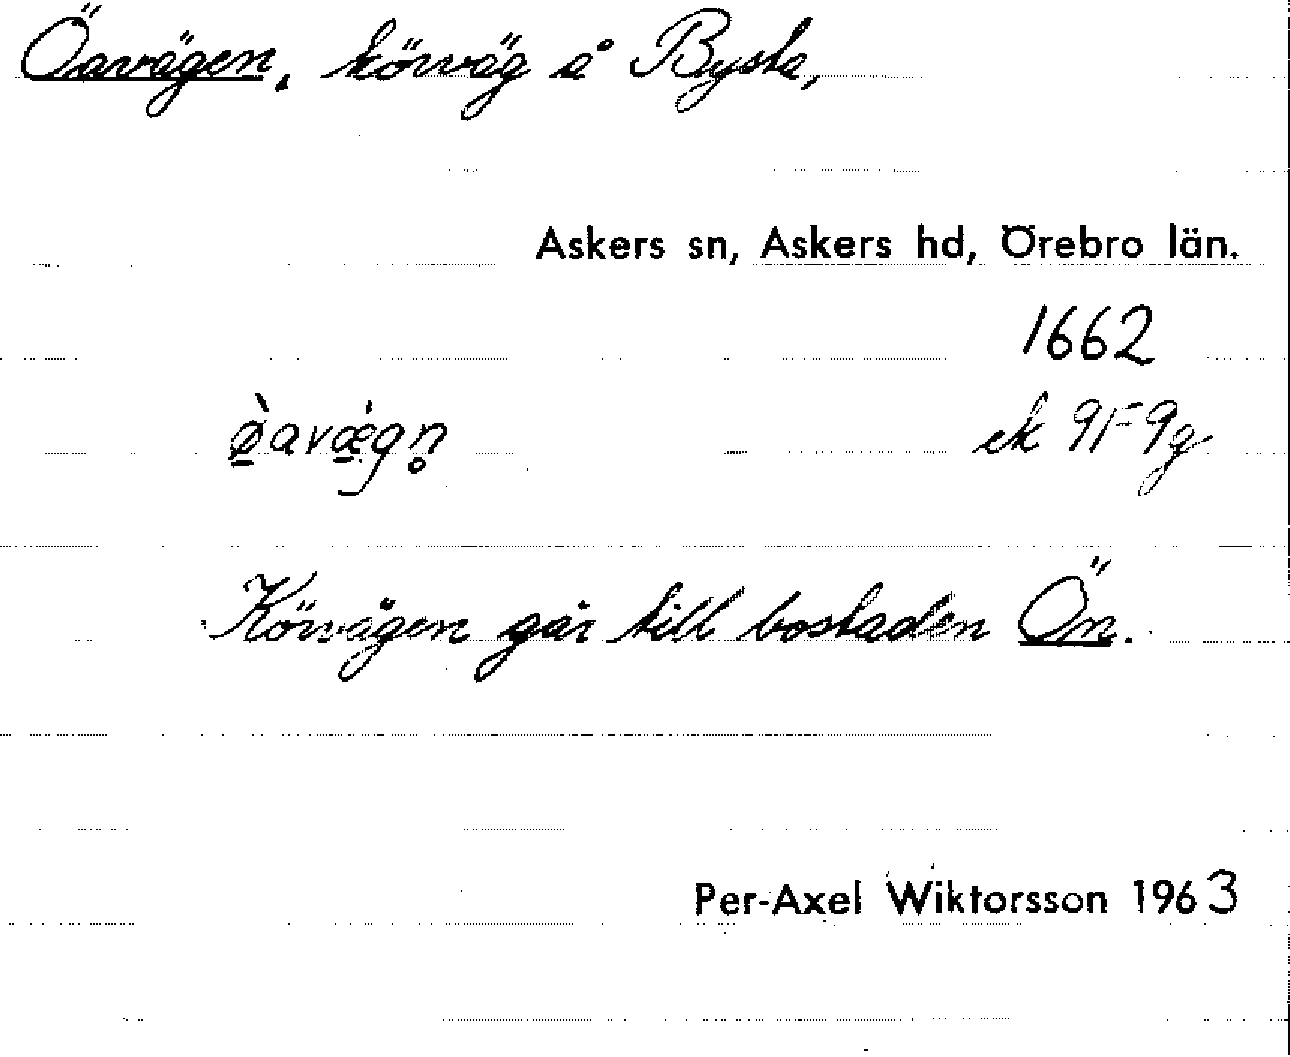 Öavägen, körväg å Bysta,
Askers sn, Askers hd, Örebro län.
1662
ø̀avæ̇gn̥
ek 9F9g
Körvägen går till bostaden Ön.
Per-Axel Wiktorsson 1963